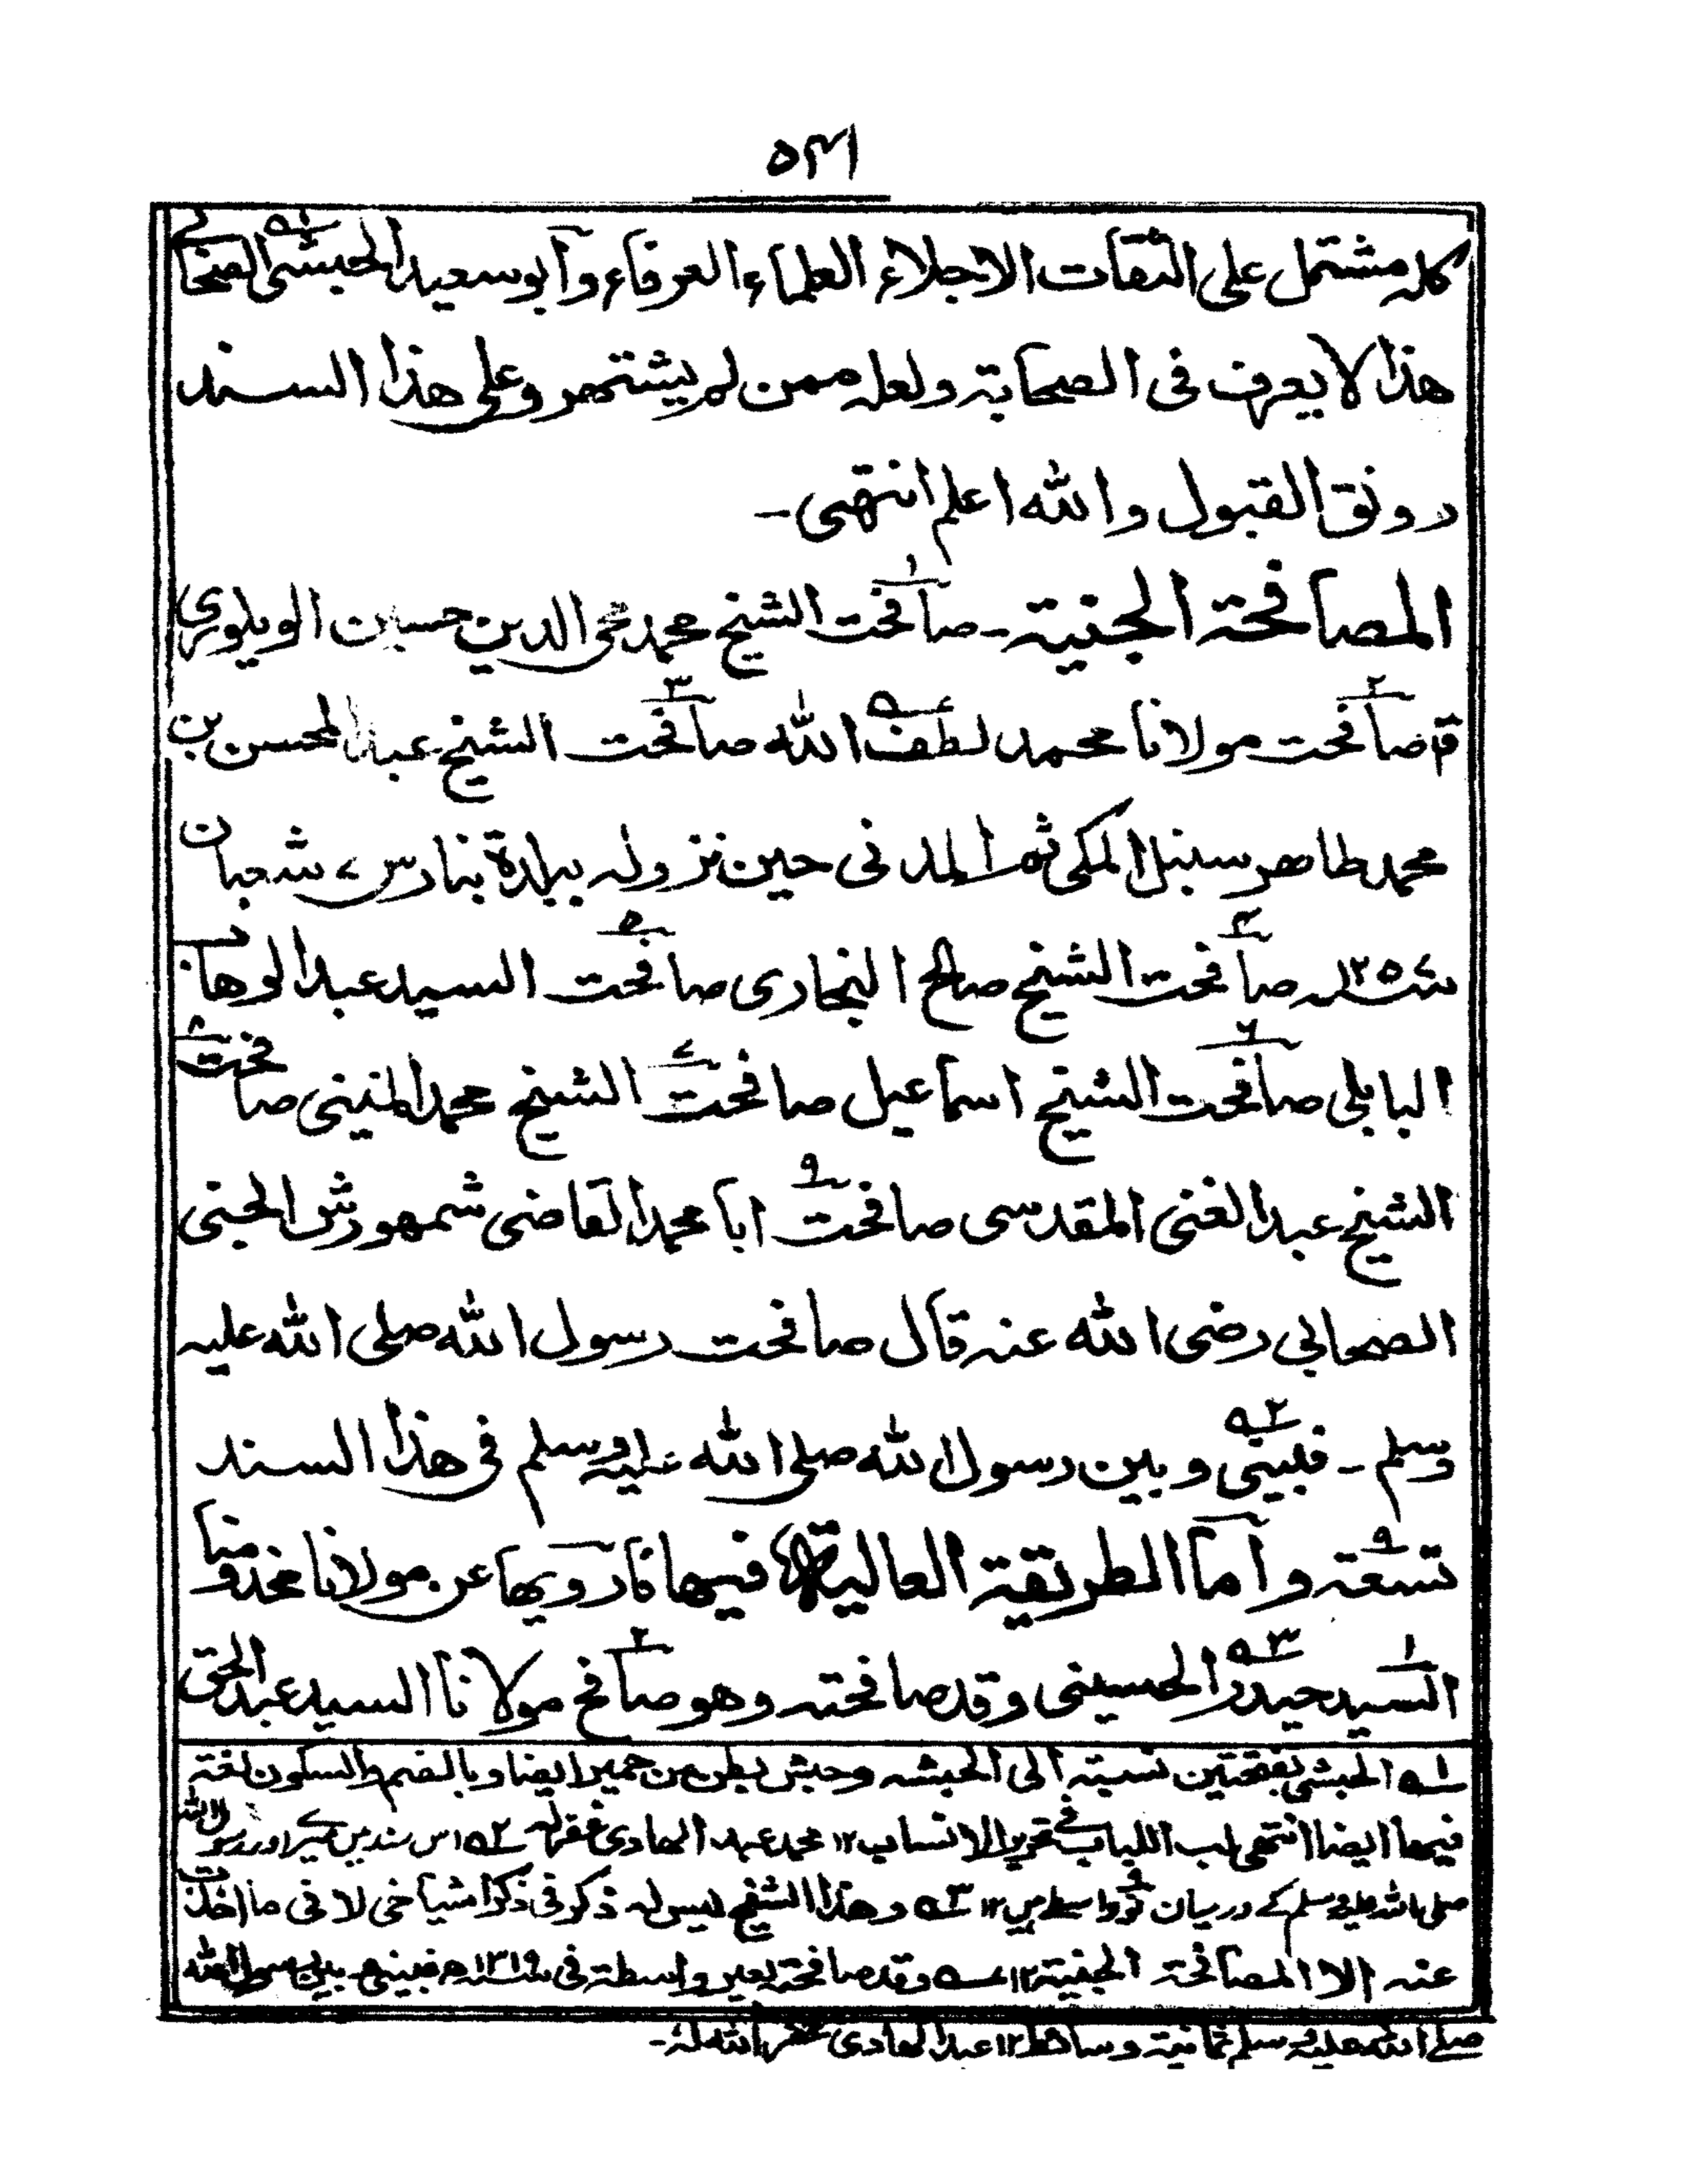 ٥٣١
كله مشتمل على الثقات الاجلاء العلماء العرفاء وابو سعيد الحبشى ١ـه الصحابي
هذا لا يعرف فى الصحابة ولعله ممن لم يشتهر وعلى هذا السند
رونق القبول والله اعلم انتهى ـ
المصافحة الجنية ـ صافحت ١ الشيخ محمد محى الدين حسين الويلورى
قم صافحت ٢ مولانا محمد لطف الله صافحت ٣ الشيخ عبد المحسن بن
محمد طاهر سنبل المكى ثم المدنى حين نزوله ببلدة بنارس ٧ شعبان
سنة ١٢٥٧ه صافحت ٤ الشيخ صالح البخارى صافحت ٥ السيد عبد الوهاب
البابلى صافحت ٦ الشيخ اسماعيل صافحت ٧ الشيخ محمد المنينى صافحت ٨
الشيخ عبد الغنى المقدسى صافحت ٩ ابا محمد القاضى شمهورش الجنى
الصحابي رضى الله عنه قال صافحت رسول الله صلى الله عليه
وسلم ـ فبينى ٢ـه وبين رسول الله صلى الله عليه وسلم فى هذا السند
تسعة ٩ واما الطريقة العالية فيها فارويها عن مولانا مخدومنا
السيد ١ حيدر ٣ـه الحسينى وقد صافحته وهو صافح ٢ مولانا السيد عبد الحق
١ـه الحبشى بفتحتين نسبة الى الحبشه وحبش بطن من حمير ايضا وبالضم والسكون لغة
فيها ايضا انتهى لب اللباب فى تحرير الانساب ١٢ محمد عبد الهادى غفر له ٢ـه اس سند میں میرے اور رسول الله
صلى الله عليه وسلم کے درمیان نو ٩ واسطے ہیں ١٢ ٣ـه وهذا الشيخ ليس له ذكر فى ذكر اشياخى لا فى ما اخذت
عنه الا المصافحة الجنية ١٢ ٤ـه وقد صافحته بغير واسطة فى سنة ١٣١٩ه فبينى وبين رسول الله
صلى الله عليه وسلم ثمانية وسائط ١٢ عبد الهادى غفر الله له ـ